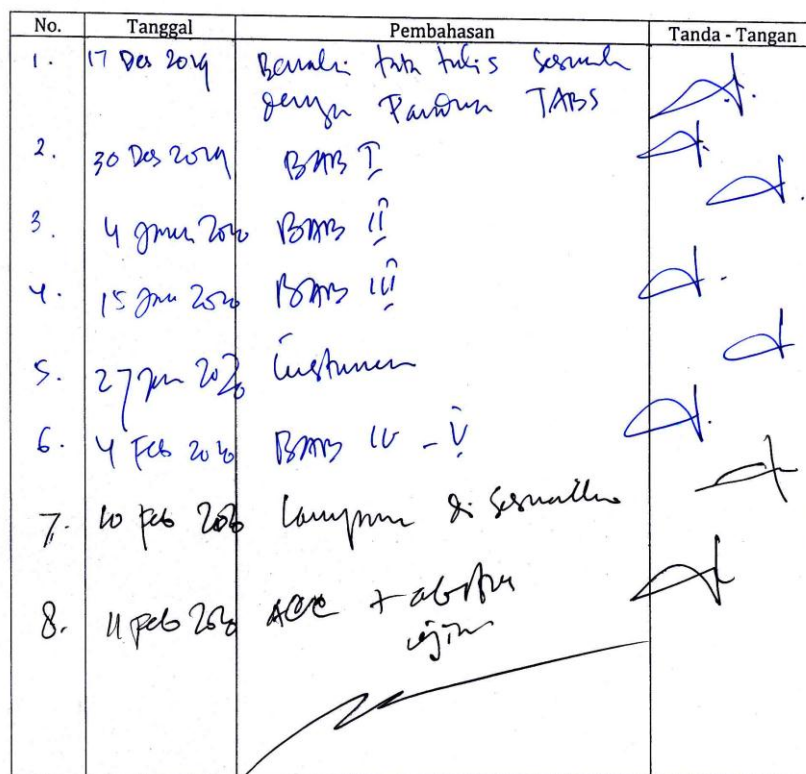 No. Tanggal Pembahasan Tanda - Tangan
1. 17 Des 2019 tata tulis sesuai
dengan Panduan TABS
2. 30 Des 2019 BAB I
3. 4 2020 BAB II
4. 15 Jan 2020 BAB III
5. 27 Jan 2020 Instrumen
6. 4 Feb 2020 BAB IV - V
7. 10 Feb 2020 Lampiran di sesuaikan
8. 11 Feb 2020 ACC +